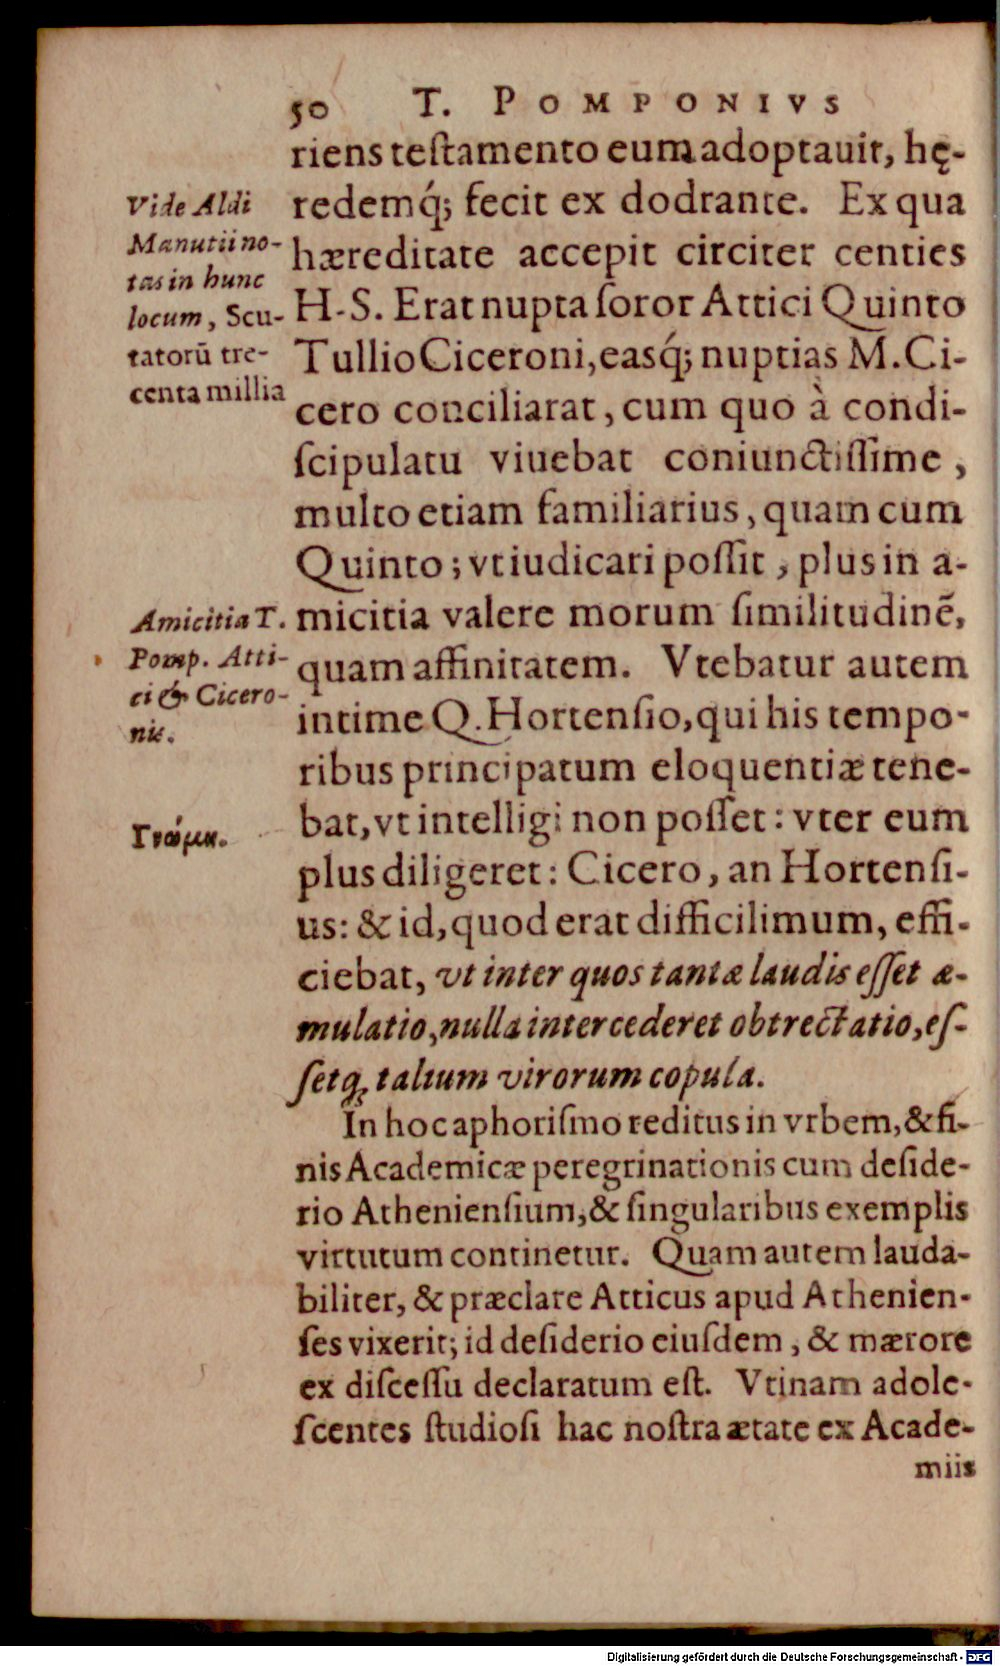 50 T. POMPONIVS
riens teſtamento eum adoptauit, hę-
redemq́; fecit ex dodrante. Ex qua
hæreditate accepit circiter centies
H-S. Erat nupta ſoror Attici Quinto
Tullio Ciceroni, easq́; nuptias M. Ci-
cero conciliarat, cum quo à condi-
ſcipulatu viuebat coniunctiſſime,
multo etiam familiarius, quam cum
Quinto; vt iudicari poſſit, plus in a-
micitia valere morum ſimilitudinē,
quam affinitatem. Vtebatur autem
intime Q. Hortenſio, qui his tempo-
ribus principatum eloquentiæ tene-
bat, vt intelligi non poſſet: vter eum
plus diligeret: Cicero, an Hortenſi-
us: & id, quod erat difficilimum, effi-
ciebat, vt inter quos tantæ laudis eſſet æ-
mulatio, nulla intercederet obtrectatio, eſ-
ſetq́; talium virorum copula.
In hoc aphoriſmo reditus in vrbem, & fi-
nis Academicæ peregrinationis cum deſide-
rio Athenienſium, & ſingularibus exemplis
virtutum continetur. Quam autem lauda-
biliter, & præclare Atticus apud Athenien-
ſes vixerit; id deſiderio eiuſdem, & mærore
ex diſceſſu declaratum eſt. Vtinam adole-
ſcentes ſtudioſi hac noſtra ætate ex Acade-
miis
Vide Aldi
Manutii no-
tas in hunc
locum, Scu-
tatorū tre-
centa millia
Amicitia T.
Pomp. Atti-
ci & Cicero-
nis.
Γνώμη.
Digitalisierung gefördert durch die Deutsche Forschungsgemeinschaft - DFG